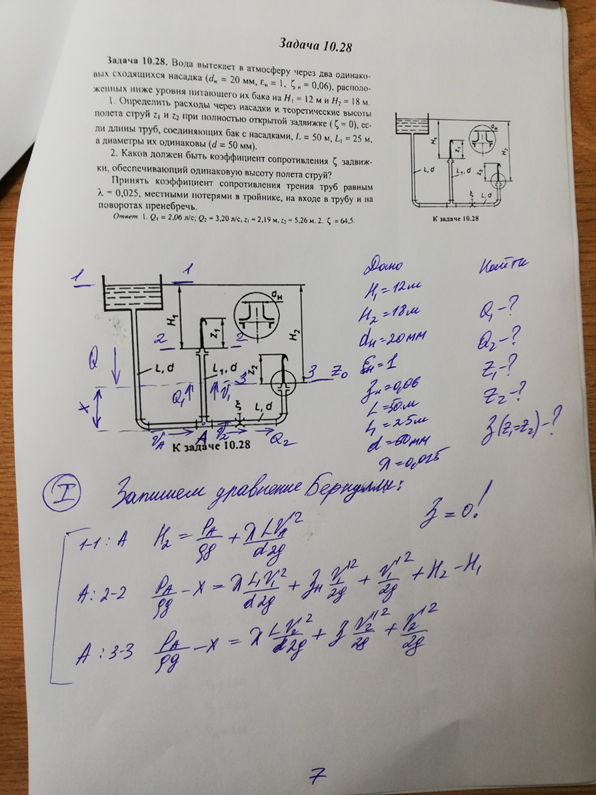 Задача 10.28
Задача 10.28. Вода вытекает в атмосферу через два одинако-
вых сходящихся насадка (dн = 20 мм, εн = 1, ζн = 0,06), располо-
женных ниже уровня питающего их бака на H1 = 12 м и H2 = 18 м.
1. Определить расходы через насадки и теоретические высоты
полета струй z1 и z2 при полностью открытой задвижке (ζ = 0), ес-
ли длины труб, соединяющих бак с насадками, L = 50 м, L1 = 25 м,
а диаметры их одинаковы (d = 50 мм).
2. Каков должен быть коэффициент сопротивления ζ задвиж-
ки, обеспечивающий одинаковую высоту полета струй?
Принять коэффициент сопротивления трения труб равным
λ = 0,025, местными потерями в тройнике, на входе в трубу и на
поворотах пренебречь.
Ответ. 1. Q1 = 2,06 л/с; Q2 = 3,20 л/с, z1 = 2,19 м, z2 = 5,26 м. 2. ζ = 64,5.
H1
z1
dн
H2
L, d
L1, d
z2
ξ
L, d
К задаче 10.28
1 1
H1
dн
z1
H2
2 2
Q
L, d
Q1
L1, d
V1
z2
3 3 z0
x
ξ
L, d
VA A V2 Q2
К задаче 10.28
Дано
H1 = 12 м
H2 = 18 м
dн = 20 мм
εн = 1
ζн = 0,06
L = 50 м
L1 = 25 м
d = 60 мм
λ = 0,025
Найти
Q1 - ?
Q2 - ?
z1 - ?
z2 - ?
ζ (z1 = z2) - ?
I Запишем уравнение Бернулли:
ζ = 0!
1-1 : A H2 = PA/ρg + λ L VA²/d2g
A : 2-2 PA/ρg - x = λ L1 V1²/d2g + ζн V1'²/2g + V1'²/2g + H2 - H1
A : 3-3 PA/ρg - x = λ L V2²/d2g + ζ V2'²/2g + V2'²/2g
7